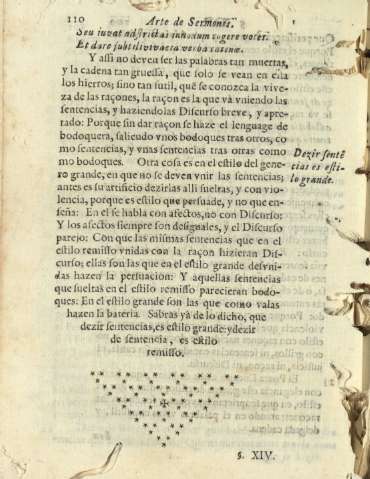 110 Arte de Sermones.
Seu iuvat adstrictas in nodum cogere voces:
Et dare subtili vivacia verba catenæ.
Y assi no deven ser las palabras tan muertas,
y la cadena tan gruessa, que solo se vean en ella
los hierros; sino tan sutil, què se conozca la vive-
za de las raçones, la raçon es la que và vniendo las
sentencias, y haziendolas Discurso breve, y apre-
tado: Porque sin dar raçon se haze el lenguage de
bodoquera, saliendo vnos bodoques tras otros, co
mo sentencias, y vnas sentencias tras otras como
mo bodoques. Otra cosa es en el estilo del gene-
ro grande, en que no se deven vnir las sentencias;
antes es su artificio dezirlas alli sueltas, y con vio-
lencia, porque es estilo que persuade, y no que en-
seña: En el se habla con afectos, no con Discurso:
Y los afectos siempre son desiguales, y el Discurso
parejo: Con que las mismas sentencias que en el
estilo remisso vnidas con la raçon hizieran Dis-
curso; ellas son las que en el estilo grande desvni-
das hazen la persuacion: Y aquellas sentencias
que sueltas en el estilo remisso parecieran bodo-
ques: En el estilo grande son las que como valas
hazen la bateria. Sabras yà de lo dicho, que
dezir sentencias, es estilo grande: y dezir
de sentencia, es estilo
remisso.
Dezir sentẽ
cias es esti-
lo grande.
§. XIV.